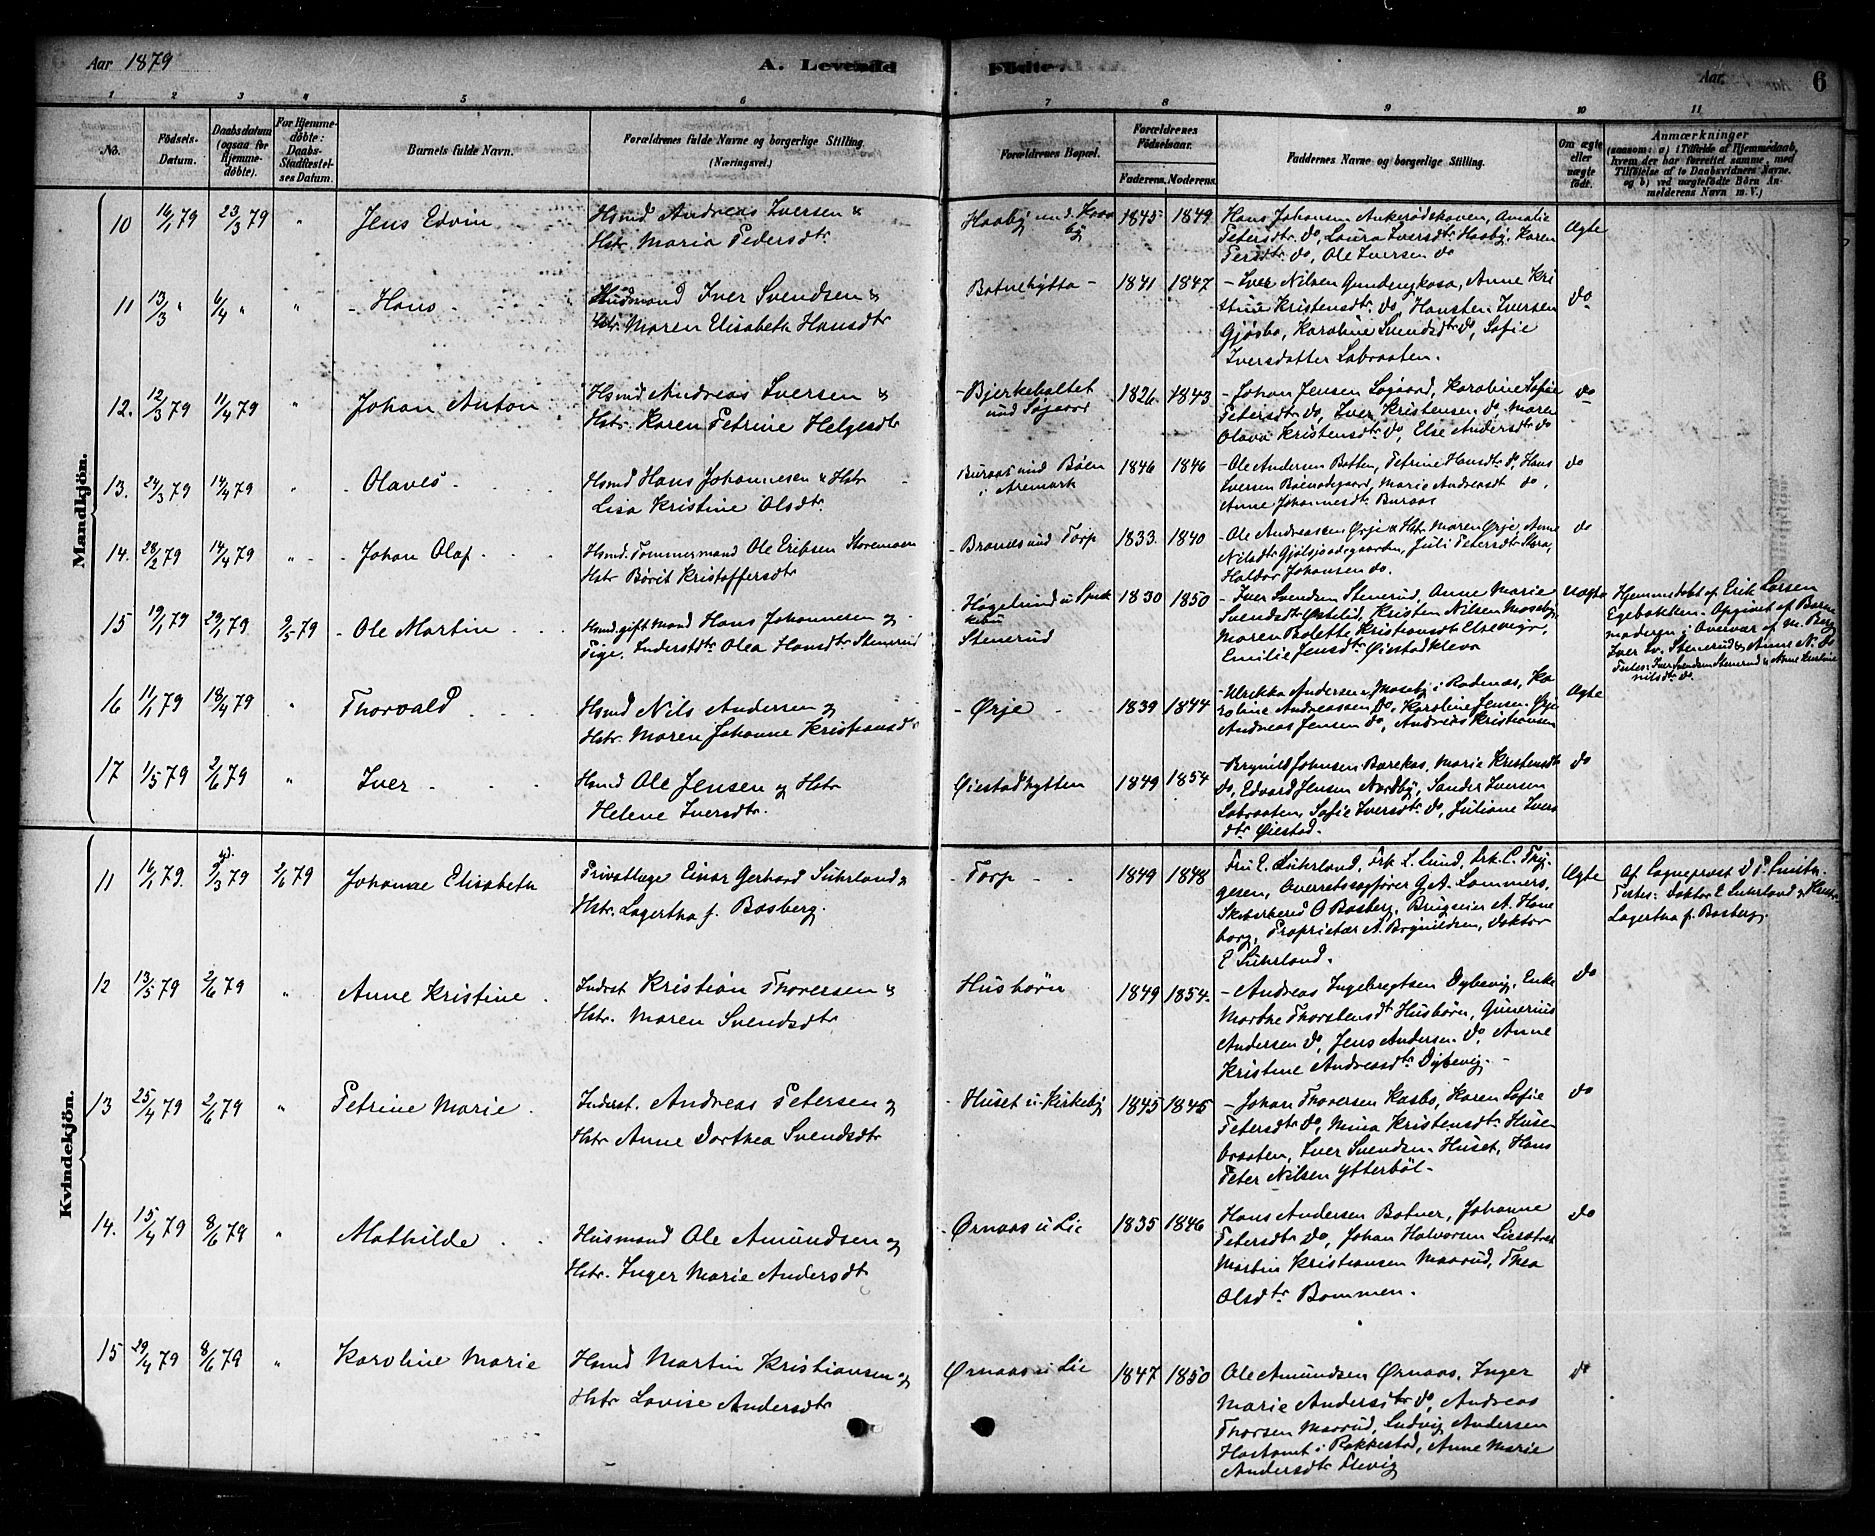 Aar 1879
A. Levende
Födte.
Aar
6
1 2 3 4 5 6 7 8 9 10 11
No.
Födsels-
Datum.
Daabsdatum
(ogsaa for
Hjemme-
döbte).
For Hjemme-
döbte:
Daabs-
Stadfæstel-
ses Datum.
Barnets fulde Navn.
Forældrenes fulde Navne og borgerlige Stilling.
(Næringsvei.)
Forældrenes Bopæl.
Forældrenes
Födselsaar.
Faderens. Moderens.
Faddernes Navne og borgerlige Stilling.
Om ægte
eller
uægte
födt.
Anmærkninger
(saasom: a) i Tilfælde af Hjemmedaab,
hvem der har forrettet samme, med
Tilföielse af to Daabsvidners Navne,
og b) ved uægtefödte Börn An-
melderens Navn m. V.)
Mandkjön.
10 16/1 79 23/3 79 " Jens Edvin
Hsmd Andreas Iversen &
Hstr. Maria Pedersdtr
Haaby und. Haaby
1845 1849
Hans Johansen Ankerødskoven, Amalie
Petersdtr. do, Laura Iversdtr Haaby, Karen
do, Ole Iversen do
Ægte
11 13/3 " 6/4 " " - Hans -
Husmand Iver Svendsen &
Hstr. Maren Elisabeth Hansdtr
Botnehytta -
1841 1847
- Iver Nilsen Anne Kri
stine Kristensdtr do, Iversen
Gjøsbo, Karoline Svendsdtr do, Sofie
Iversdatter Labraaten.
do
12. 12/3 79 11/4 79 " Johan Anton
Hsmd. Andreas Iversen &
Hstr. Karen Petrine Helgesdtr
- Bjerkeholtet
und Søgaard
1826 1843
- Johan Jensen Søgaard, Karoline Sofie
Petersdtr do, Iver Kristensen do, Maren
Olava Kristensdtr do, Else Andersdtr do
do
13. 24/3 79 14/4 79 " - Olaves -
Hsmd Hans Johannesen & Hstr
Lisa Kristine Olsdtr.
Buraas und Bøen
i Aremark
1846 1846
- Ole Andersen Botten, Petrine Hansdtr do, Hans
Iversen Bøenødegaard, Marie Andreasdt do,
Anne Johannesdtr Buraas
do
14. 28/2 79 14/4 79 " - Johan Olaf -
Hsmd. Tømmermand Ole Eriksen Storemoen
Hstr Børit Kristoffersdtr
- Branæs und Torp
1833 1840
- Ole Andreassen Ørje & Hstr Maren Ørje, Anne
Nilsdtr Gjølsjødegaarden, Juli Petersdtr
Haldor Johansen do.
do
15 19/1 79 29/1 79 9/5 79 - Ole Martin
Hsmd. gift Mand Hans Johannesen og
Pige. Inderstdtr Olea Hansdtr Stenerud
Stenerud
1830 1850
- Iver Svendsen Stenerud, Anne Marie
Svendsdtr Østelid, Kristen Nilsen Moseby,
Maren Kristiansdtr
Emilie Jensdtr Øiestadkleva
Uægte
Hjemmedøbt af Erik Larsen
Egebakken. Opgivet af Barne
moderen i Overvær af
Iver Sv. Stenerud & Anne N. do
Testes: Iver Svendsen Stenerud & Anne Kirstine
Nilsdtr do.
16 11/1 79 18/4 79 " Thorvald
Hsmd Nils Andersen og
Hstr. Maren Johanne Kristiansdr
- Ørje -
1839 1844
- Ulrikka Andersen Moseby i Rødenæs, Ka
roline Andreassen do, Karoline Jensen Ørje
Andreas Jensen do, Andreas Kristiansen
Ægte
17 1/5 79 2/6 79 " Iver
Hsmd Ole Jensen og Hstr
Helene Iversdtr.
Øiestadhytten
1849 1854
- Brynild Johnsen Marie Kristensdtr
do, Edvard Jensen Nordby, Sander Iversen
Labraaten, Sofie Iversdtr do, Juliane Ivers
dtr Øiestad.
do
Kvindekjön.
11 16/1 79. 9/3 79 2/6 79 Johanne Elisabeth
Privatlæge Einar Gerhard Suhrland &
Hstr. Lagertha f. Basberg.
- Torp -
1849 1848
Fru E. Suhrland, Frk L. Lund, Frk. C.
Overretssagfører G. A. Lammers,
O Basberg, Brugseier A. Hane
borg, Proprietær A. Brynildsen, Doktor
E Suhrland.
Ægte
Af Sogneprest
Testes: Doktor E Suhrland og Hustr
Lagertha f. Basberg.
12 13/5 79 2/6 79 " Anne Kristine
Inderst Kristian Thoresen &
Hstr. Maren Svendsdtr
Husbørn
1849 1854.
- Andreas Ingebregtsen Dybevig, Enke
Marthe Thorstensdt Husbørn, Gunerius
Andersen do, Jens Andersen do, Anne
Kristine Andreasdtr Dybevig. -
do
13 25/4 79 2/6 79 " Petrine Marie
Inderst. Andreas Petersen og
Hstr Anne Dorthea Svendsdtr
- Huset u. Kirkeby
1845 1845
- Johan Thoresen Kasbo, Karen Sofie
Petersdtr do, Mina Kristensdtr Husen
braaten, Iver Svendsen Huset, Hans
Peter Nilsen Ytterbøl -
do
14. 15/4 79 8/6 79 " Mathilde
Husmand Ole Amundsen og
Hstr. Inger Marie Andersdt
- Ørnaas u Lie
1835 1846
Hans Andersen Botner, Johanne
Petersdtr do, Johan Halvorsen
Martin Kristiansen Maarud, Thea
Olsdtr Bommen.
do
15 29/4 79 8/6 79 " Karoline Marie
Hsmd Martin Kristiansen og
Hstr Lovise Andersdtr
Ørnaas u Lie
1847 1850
Ole Amundsen Ørnaas, Inger
Marie Andersdtr do, Andreas
Thorsen Maarud, Ludvig Andersen
i Rakkestad, Anne Marie
Andersdtr
do